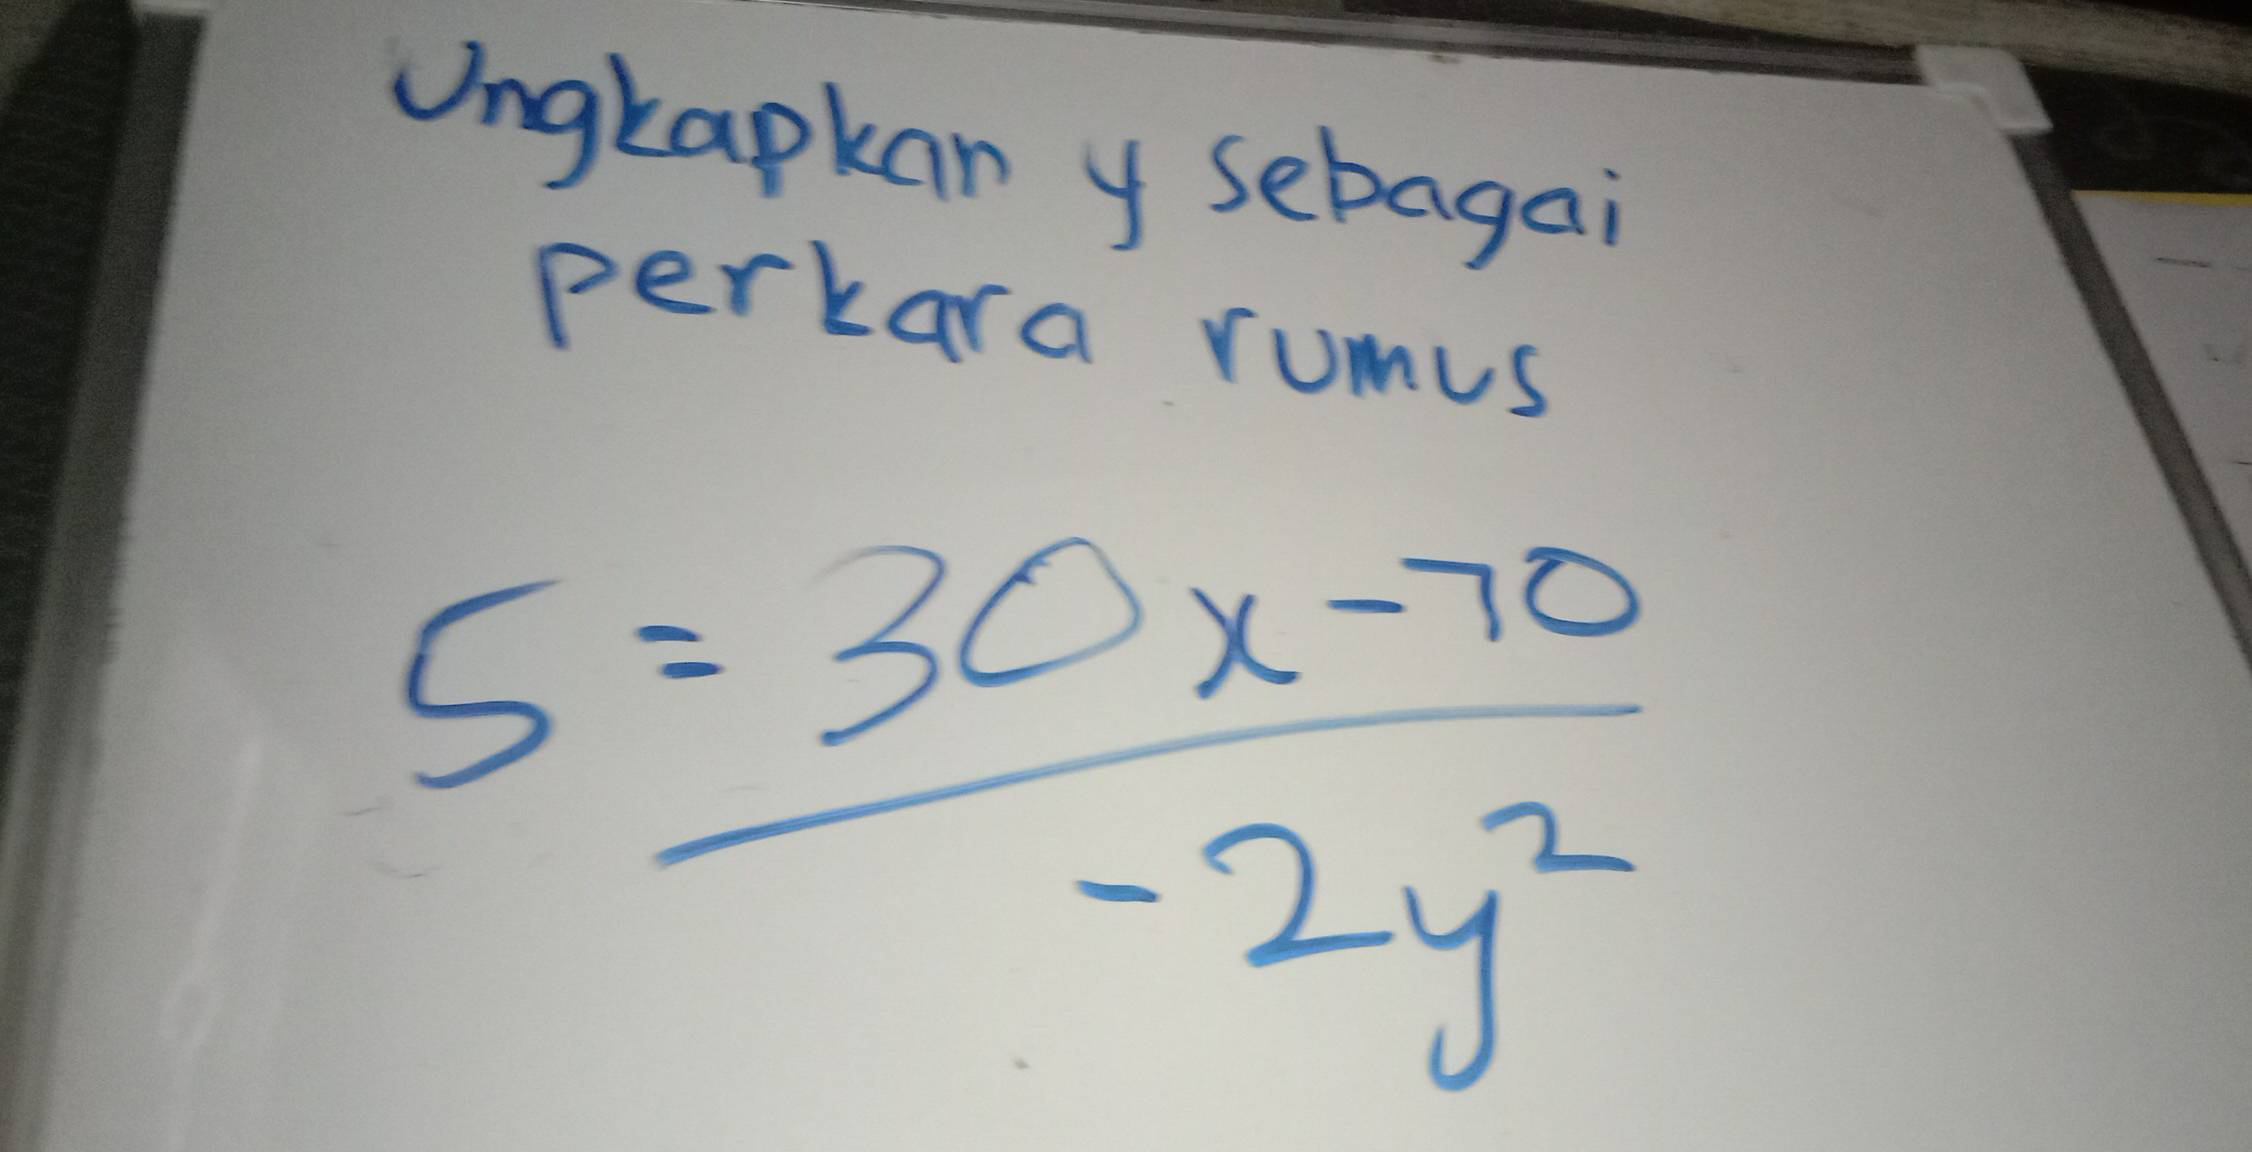 Ungkapkan y sebagai
perkara rumus
5 = 30x - 70
- 2y²